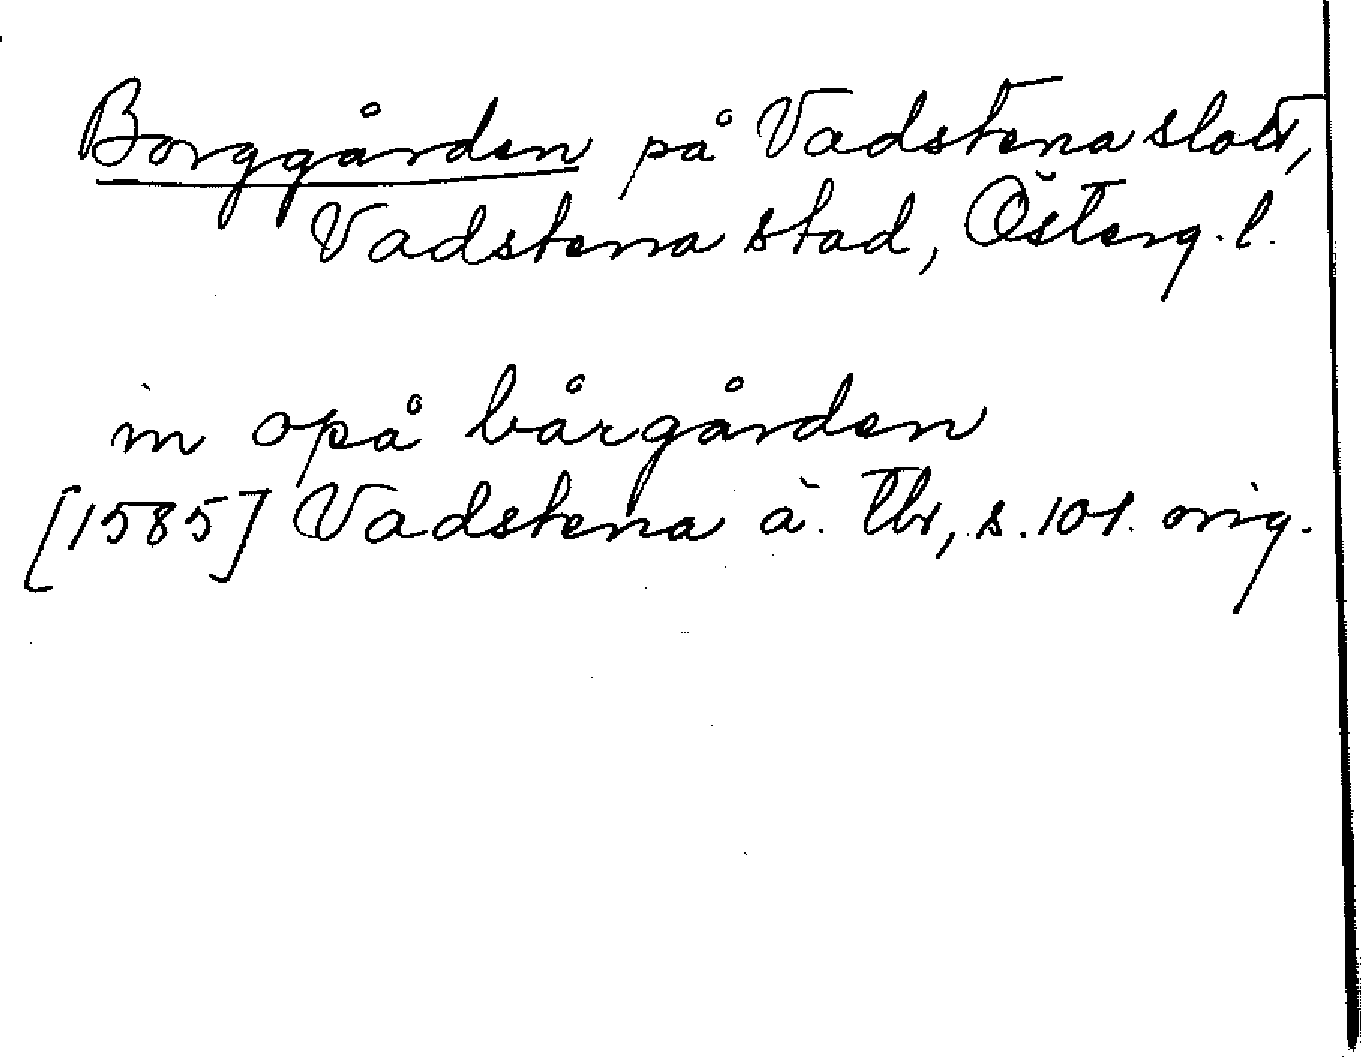 Borggården på Vadstena slott,
Vadstena stad, Österg. l.
in opå bårgården
[1585] Vadstena ä. Tb, s. 101. orig.